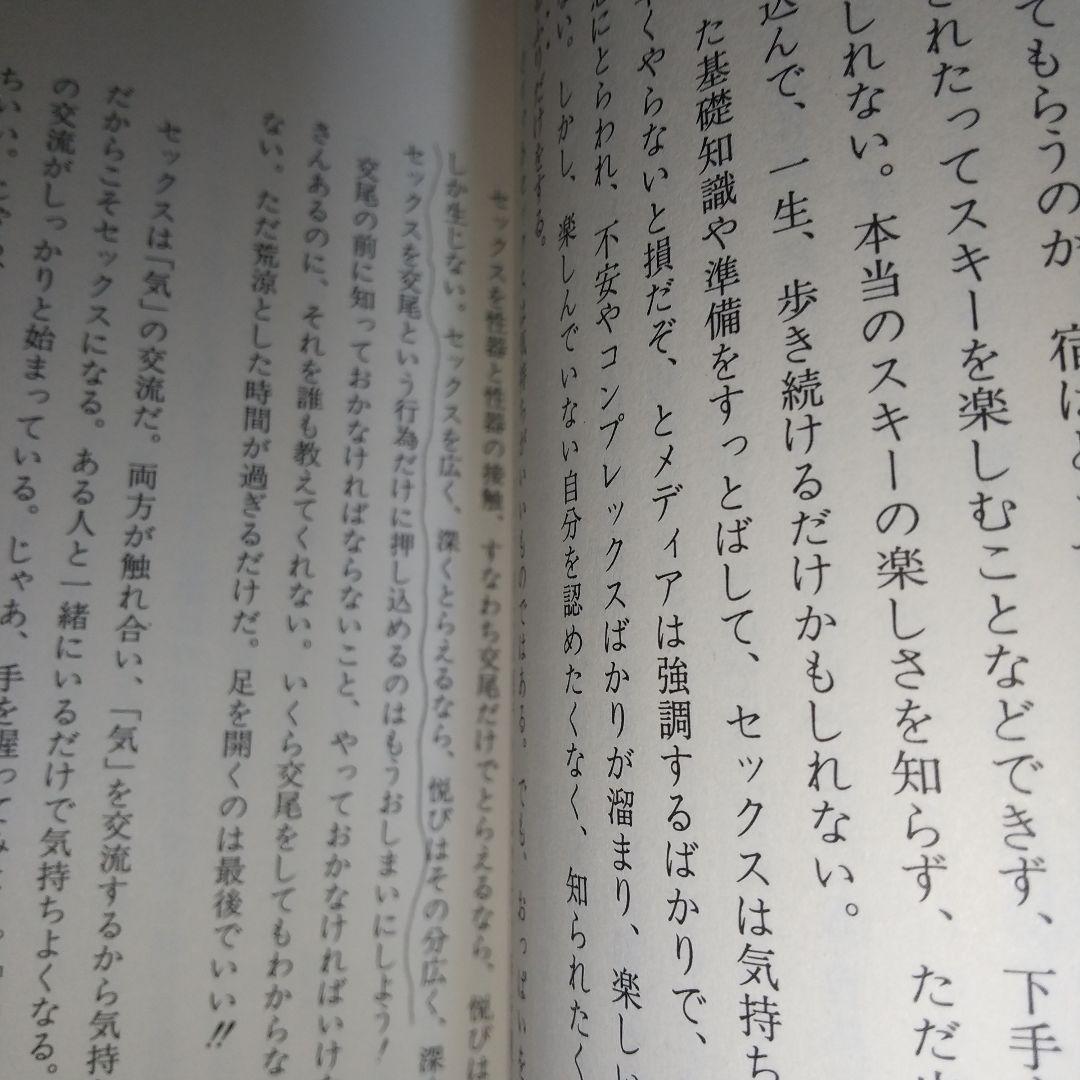 てもらうのが、宿は
れたってスキーを楽しむことなどできず、下手
しれない。本当のスキーの楽しさを知らず、ただ
込んで、一生、歩き続けるだけかもしれない。
た基礎知識や準備をすっとばして、セックスは気持ち
くやらないと損だぞ、とメディアは強調するばかりで、
にとらわれ、不安やコンプレックスばかりが溜まり、楽し
ない。しかし、楽しんでいない自分を認めたくなく、知られたく
ふりだけをする。
いいものではある。でも、おっぱいを
セックスを性器と性器の接触、すなわち交尾だけでとらえるなら、悦びは
しか生じない。セックスを広く、深くとらえるなら、悦びはその分広く、深
セックスを交尾という行為だけに押し込めるのはもうおしまいにしよう！
交尾の前に知っておかなければならないこと、やっておかなければいけ
さんあるのに、それを誰も教えてくれない。いくら交尾をしてもわからな
ない。ただ荒涼とした時間が過ぎるだけだ。足を開くのは最後でいい!!
セックスは「気」の交流だ。両方が触れ合い、「気」を交流するから気持
だからこそセックスになる。ある人と一緒にいるだけで気持ちよくなる。
の交流がしっかりと始まっている。じゃあ、手を握ってみ
ちいい。